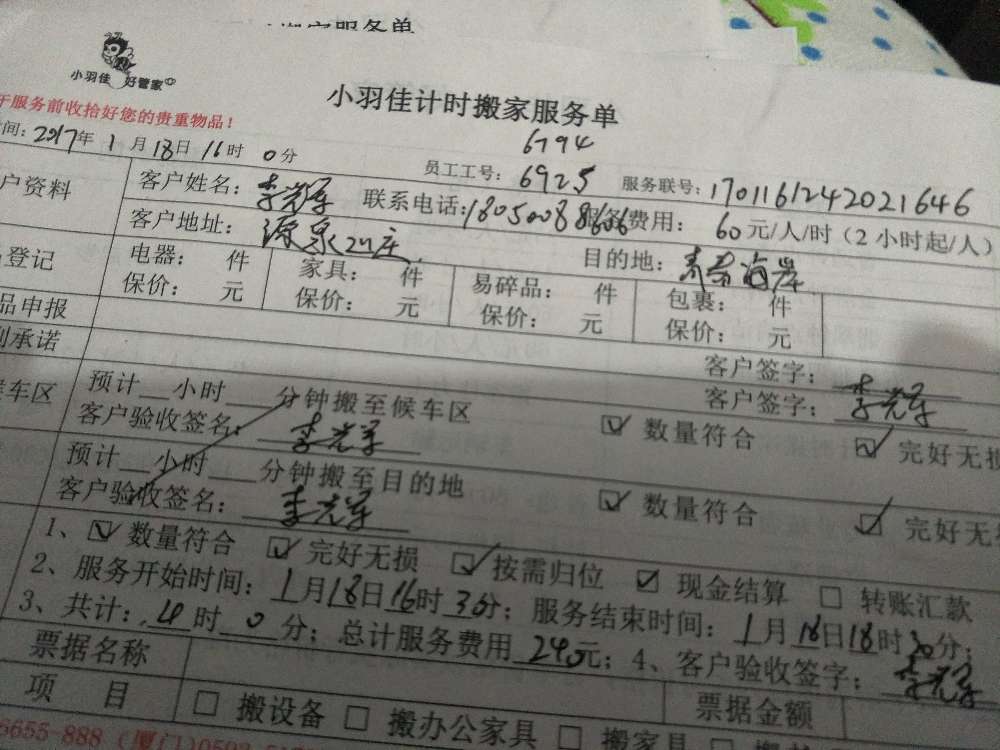 搬家服务单
小羽佳 好管家
小羽佳计时搬家服务单
于服务前收拾好您的贵重物品！
6794
时间：2017年 1月 18日 16时 0分 员工工号：6925 服务联号：1701161242021646
户资料 客户姓名： 联系电话：18050088606 服务费用：60元/人/时（2小时起/人）
客户地址： 目的地：
登记 电器： 件 家具： 件 易碎品： 件 包裹： 件
保价： 元 保价： 元 保价： 元 保价： 元
品申报
承诺 客户签字：
客户签字：
候车区 预计__小时___分钟搬至候车区
客户验收签名： ☑ 数量符合 ☑ 完好无损
预计__小时___分钟搬至目的地
客户验收签名： ☑ 数量符合 ☑ 完好无
1、☑ 数量符合 ☑ 完好无损 ☑ 按需归位 ☑ 现金结算 □ 转账汇款
2、服务开始时间：1月18日16时30分；服务结束时间：1月18日18时30分；
3、共计：4时0分；总计服务费用240元；4、客户验收签字：
票据名称 票据金额
项 目 □ 搬设备 □ 搬办公家具 □ 搬家具
6655-888（厦门）